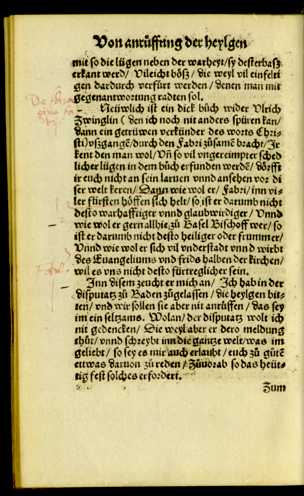 Von anrüffung der heylgen
mit so die lügen neben der warheyt/ sy desterbasz
erkant werd/ Vileicht böß/ die weyl vil einfelti
gen dardurch verfürt werden/ denen man mit
gegenantwortung radten sol.
Neüwlich ist ein dick büch wider Vlrich
Zwinglin (den ich noch nit anders spüren kan/
dann ein getrüwen verkünder des worts Chri-
sti) vßgangē/ durch den Fabri zusamē bracht/ Jr
kent den man wol/ Vñ so vil vngereimpter sched
licher lügen in dem büch erfunden werdē/ dörfft
ir euch nit an sein larnen vnnd ansehen vor di
ser welt keren/ Dann wie wol er/ Fabri/ inn vi-
ler fürsten höffen sich helt/ so ist er darumb nicht
desto warhafftiger vnnd glaubwirdiger/ Vnnd
wie wol er gern allhie zu Basel Bischoff wer/ so
ist er darumb nicht desto heiliger oder frummer/
Vnnd wie wol er sich vil vnderstadt vnnd wirbt
des Euangeliums vnd frids halben der kirchen/
wil es vns nicht desto fürtreglicher sein.
Jnn disem zeucht er mich an/ Jch hab in der
disputatz zu Baden zugelassen/ die heylgen bit-
ten/ vnd wir sollen sie aber nit anrüffen/ das sey
im ein seltzams. Wolan/ der disputatz wolt ich
nit gedencken/ Die weyl aber er dero meldung
thut/ vnnd schreybt inn die gantze welt/ was im
geliebt/ so sey es mir auch erlaubt/ euch zu gutē
ettwas daruon zu reden/ Zuuorab so das heüt-
tig fest solches erfordert.
Zum